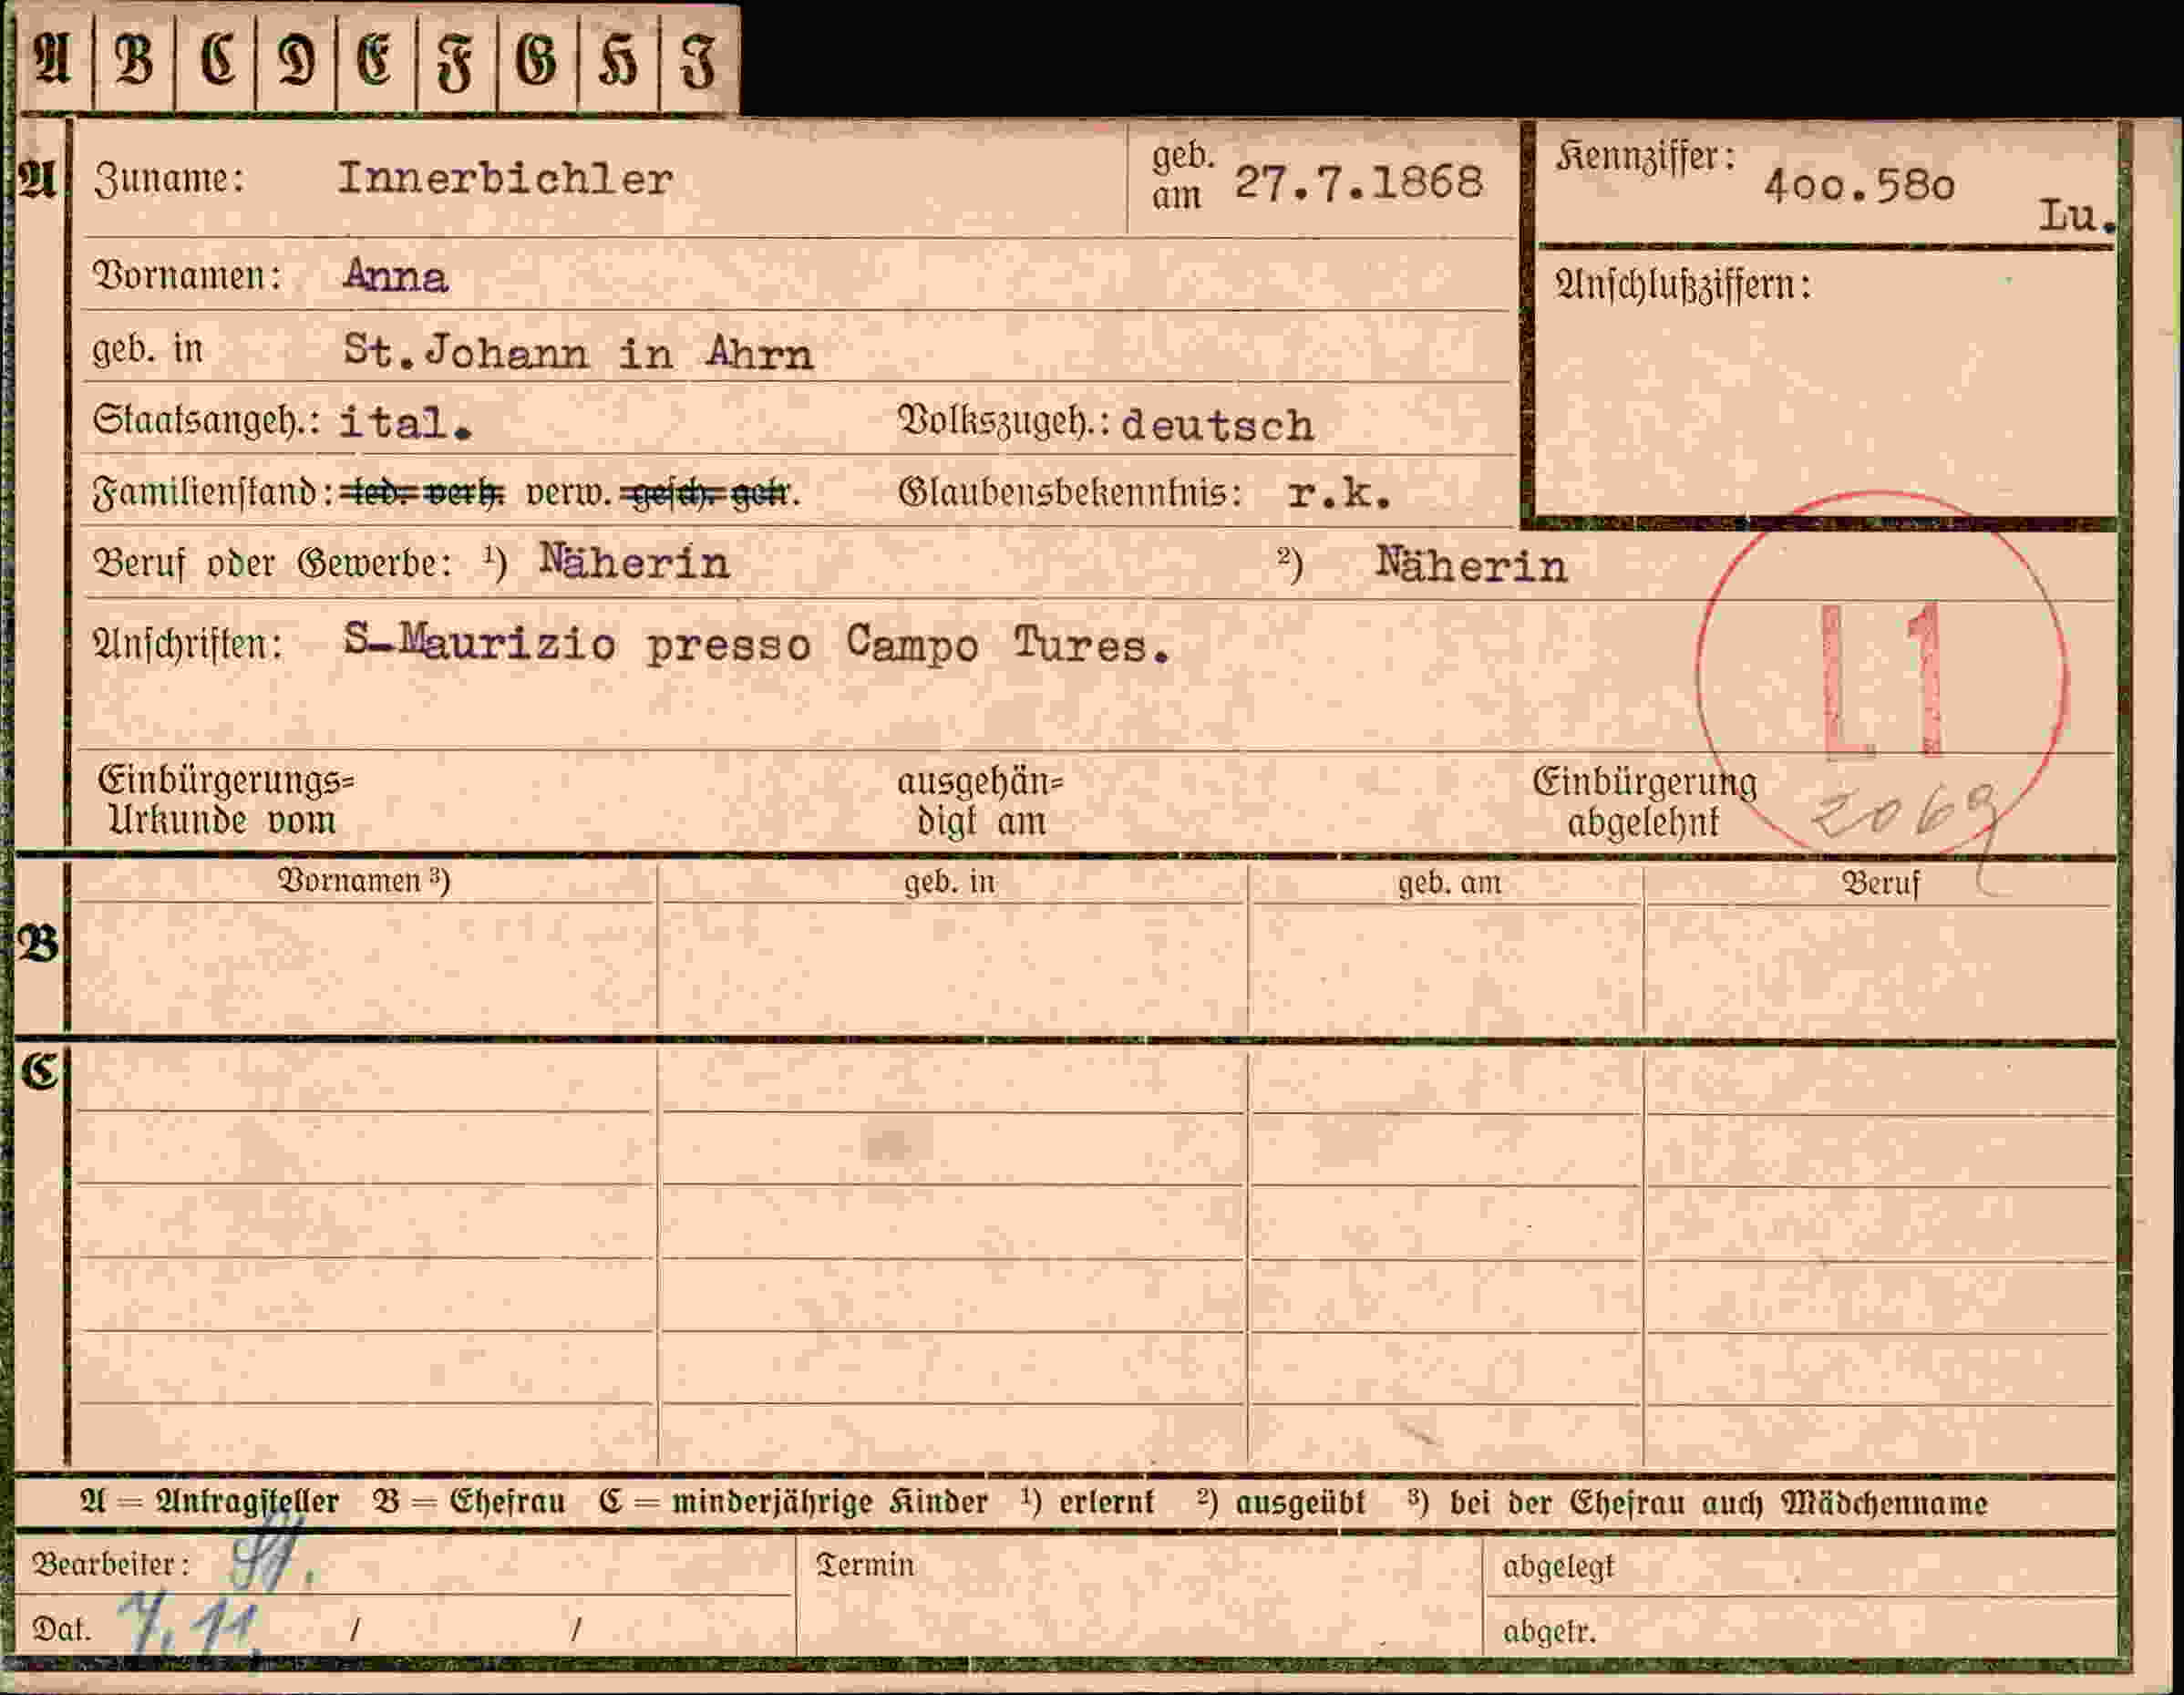 A B C D E F G H I
A Zuname: Innerbichler geb. am 27.7.1868 Kennziffer: 400.580 Lu.
Vornamen: Anna Anschlußziffern:
geb. in St.Johann in Ahrn
Staatsangeh.: ital. Volkszugeh.: deutsch
Familienstand: led. verh. verw. gesch. getr. Glaubensbekenntnis: r.k.
Beruf oder Gewerbe: ¹) Näherin ²) Näherin
Anschriften: S-Maurizio presso Campo Tures.
L1
Einbürgerungs= ausgehän= Einbürgerung
Urkunde vom digt am abgelehnt 2069
Vornamen ³) geb. in geb. am Beruf
B
C
A = Antragsteller B = Ehefrau C = minderjährige Kinder ¹) erlernt ²) ausgeübt ³) bei der Ehefrau auch Mädchenname
Bearbeiter: Termin abgelegt
Dat. 7.11. / / abgetr.